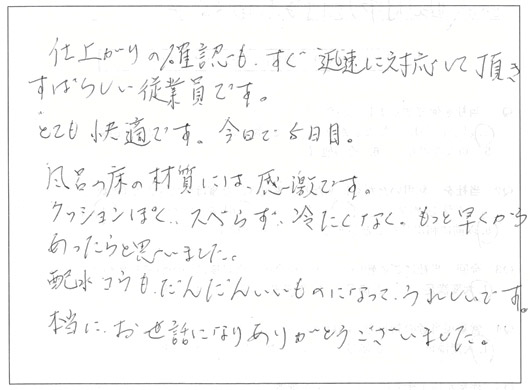 仕上がりの確認も、すぐ迅速に対応して頂き
すばらしい従業員です。
とても快適です。今日で5日目。
風呂の床の材質には、感激です。
クッションぽく、スベらず、冷たくなく。もっと早くから
あったらと思いました。
配水コウも、だんだんいいものになって、うれしいです。
本当に、お世話になりありがとうございました。